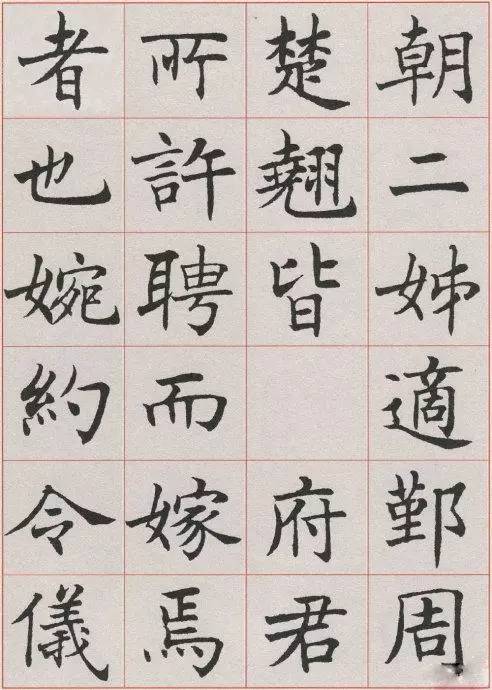 朝二姊適鄞周
楚翹皆　府君
所許聘而嫁焉
者也婉約令儀